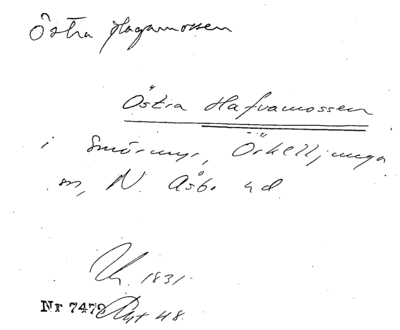 Östra Hagamossen
Östra Hafvamossen
i Smörmyr, Örkelljunga
sn, N. Åsbo hd.
1831.
Nr 7479 Akt 48.